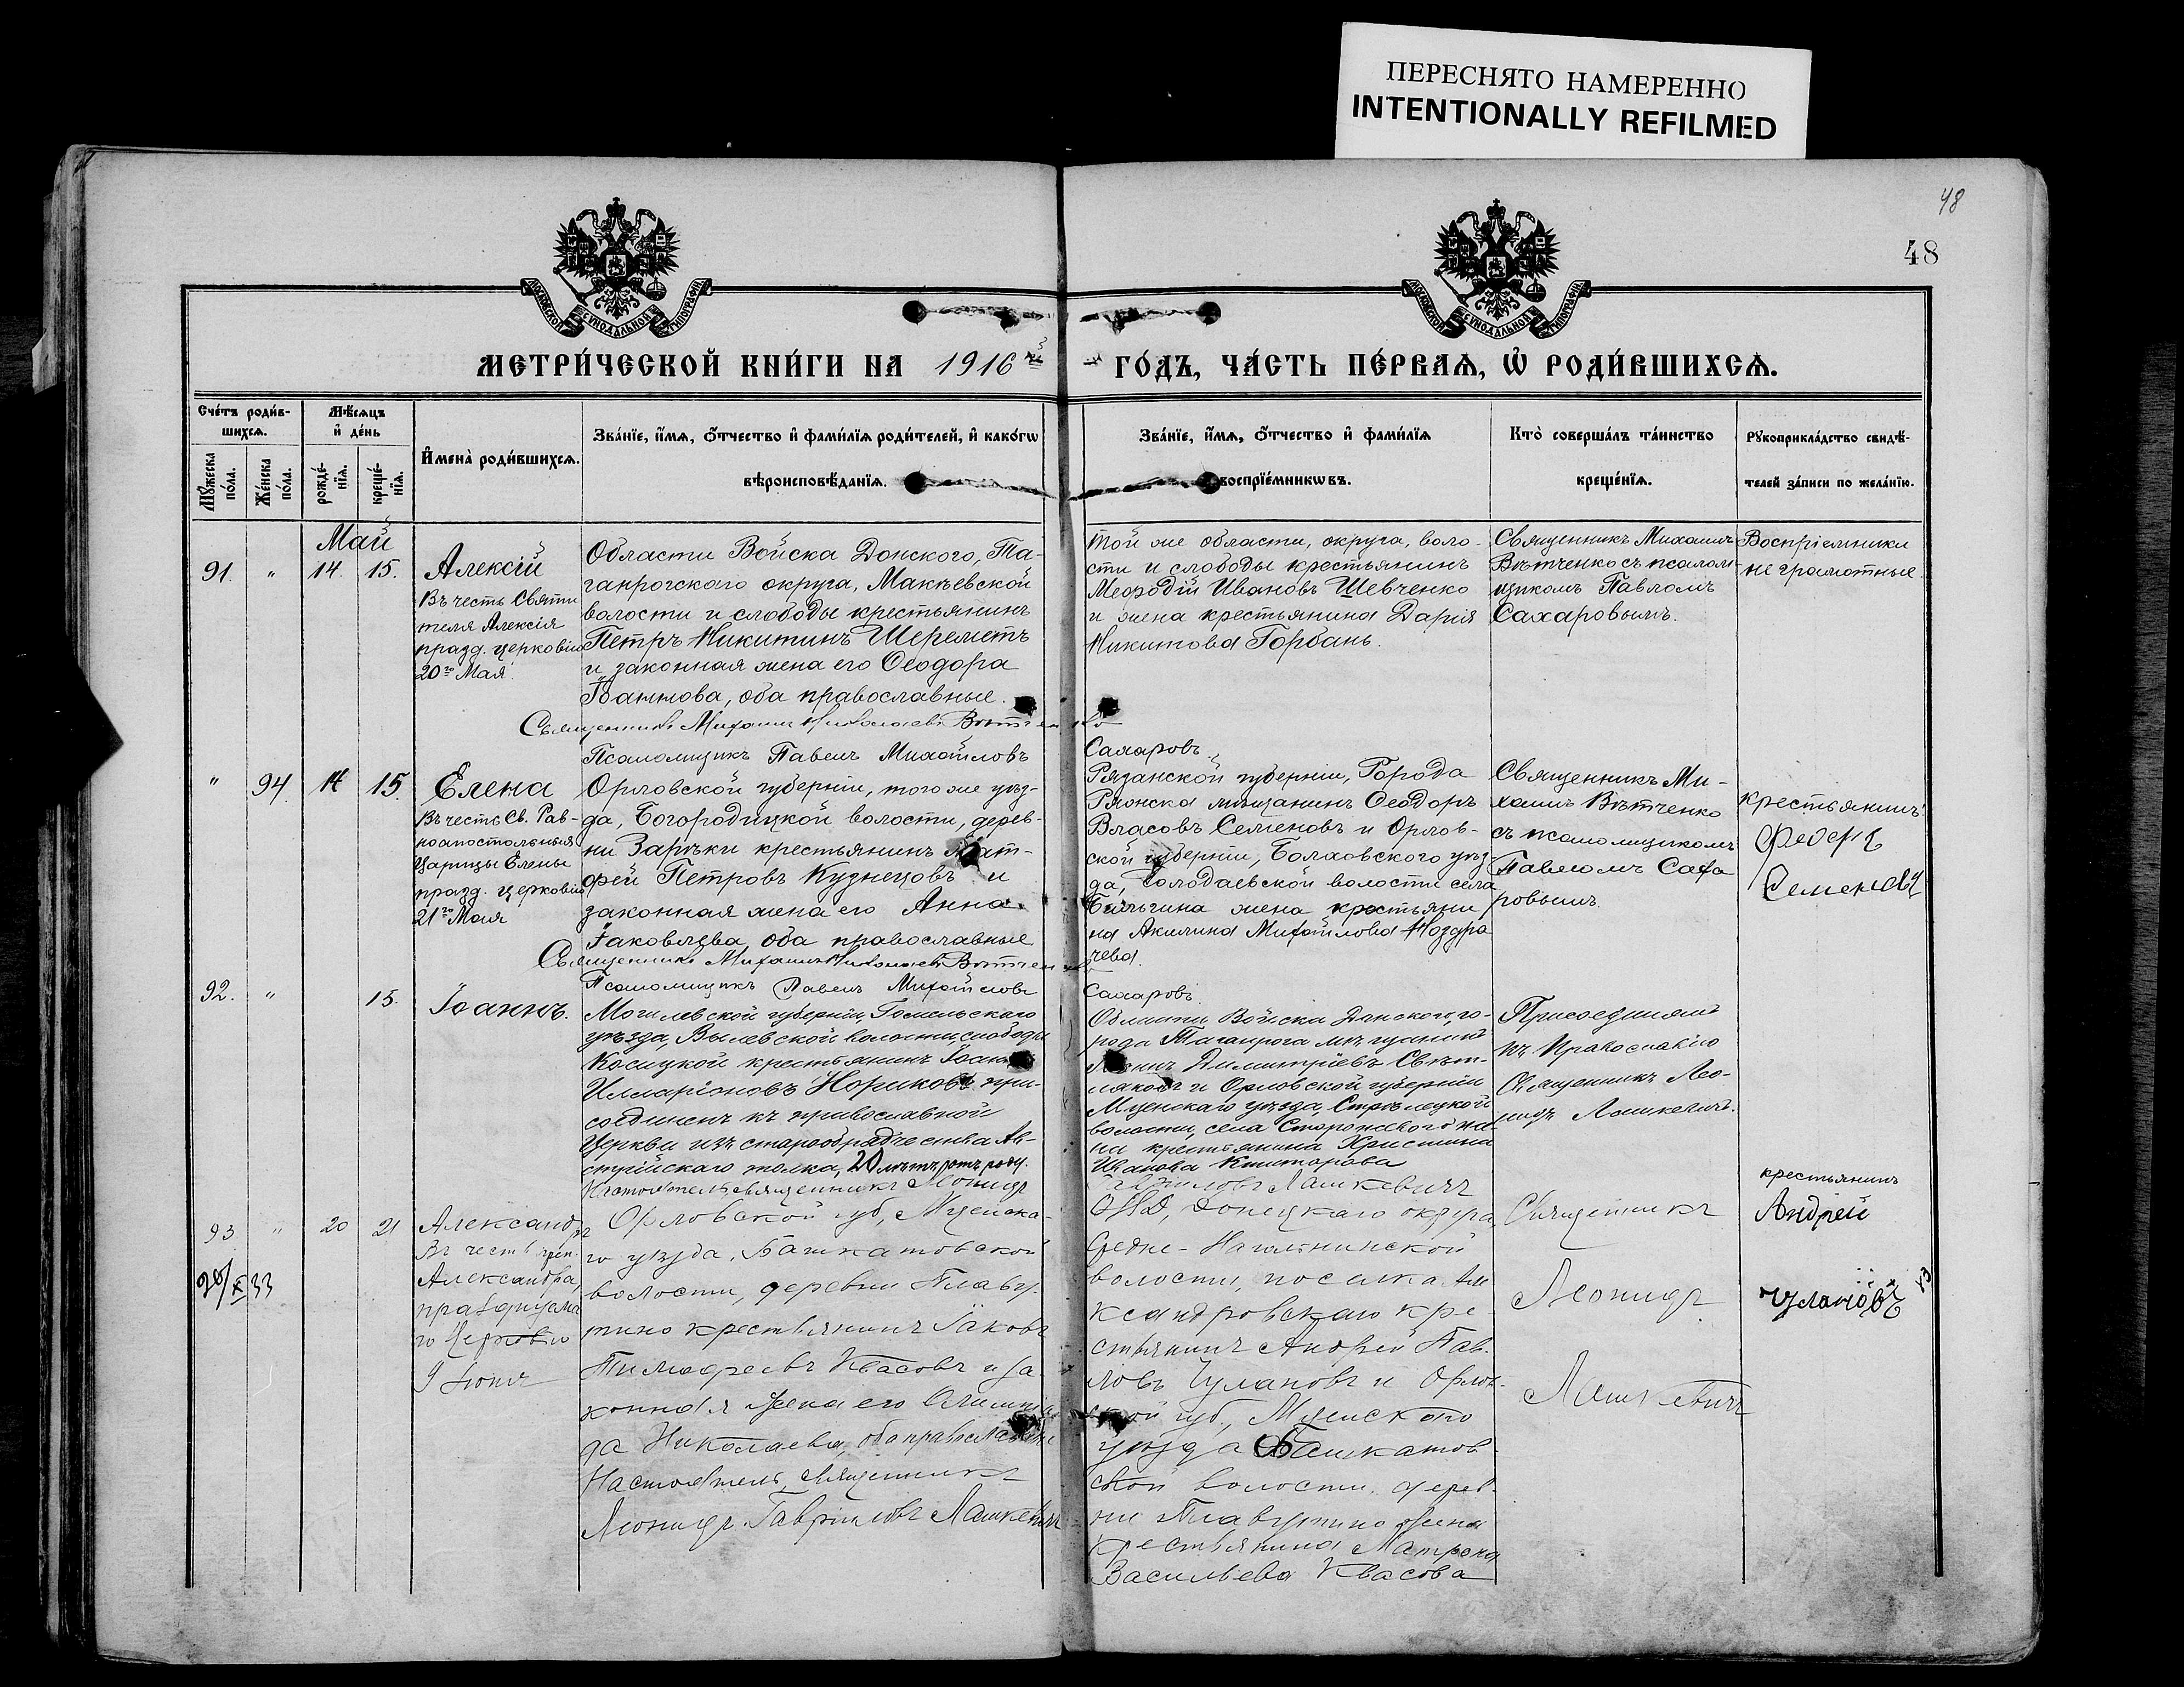 ПЕРЕСНЯТО НАМЕРЕННО
INTENTIONALLY REFILMED
48
48
МОСКОВСКОЙ СѴНОДАЛЬНОЙ ТИПОГРАФІИ
МОСКОВСКОЙ СѴНОДАЛЬНОЙ ТИПОГРАФІИ
МЕТРИ́ЧЕСКОЙ КНИ́ГИ НА 1916 й
ГО́ДЪ, ЧА́СТЬ ПЕ́РВАѦ, Ѡ҆ РОДИ́ВШИХСѦ.
Сче́тъ роди́в-
шихсѧ.
Мѣ́сѧцъ
и҆ де́нь
Мꙋ́жеска
по́ла.
Же́нска
по́ла.
рожде́-
нїѧ.
креще́-
нїѧ.
И҆мена̀ роди́вшихсѧ.
Зва́нїе, и҆́мѧ, ѻ҆́тчество и҆ фами́лїѧ роди́телей, и҆ како́гѡ
вѣроисповѣ́данїѧ.
Зва́нїе, и҆́мѧ, ѻ҆́тчество и҆ фами́лїѧ
воспрїе́мникѡвъ.
Кто̀ соверша́лъ та́инство
креще́нїѧ.
Рꙋкоприкла́дство свидѣ́-
телей за́писи по жела́нїю.
Май
91. " 14. 15.
Алексій
Въ честь Святи
теля Алексія
празд. церковію
20го Мая.
Области Войска Донского, Та-
ганрогскаго округа, Макѣевской
волости и слободы крестьянинъ
Петръ Никитинъ Шереметъ
и законная жена его Ѳеодора
Іоаннова, оба православные.
Священникъ Михаилъ Николаевъ Вѣтченко
Псаломщикъ Павелъ Михайловъ
Сахаровъ.
Той же области, округа, воло-
сти и слободы крестьянинъ
Меѳодій Ивановъ Шевченко
и жена крестьянина Дарія
Никитова Горбань.
Священникъ Михаилъ
Вѣтченко съ псалом-
щикомъ Павломъ
Сахаровымъ.
Воспріемники
не грамотные
" 94. 14 15.
Елена
Въ честь Св. Рав-
ноапостольныя
Царицы Елены
празд. церковію
21го Мая
Орловской губерніи, того же уѣз-
да, Богородицкой волости, дерев-
ни Зарѣки крестьянинъ Мат-
фей Петровъ Кузнецовъ и
законная жена его Анна
Іаковлева, оба православные
Священникъ Михаилъ Николаевъ Вѣтченко
Псаломщикъ Павелъ Михайловъ
Сахаровъ.
Рязанской губерніи, Города
Ряжска мѣщанинъ Ѳеодоръ
Власовъ Семеновъ и Орлов-
ской губерніи, Болховского уѣз-
да, волости села
жена крестьяни
на Акилина Михайлова Ноздра
чева.
Священникъ Ми-
хаилъ Вѣтченко
съ псаломщикомъ
Павломъ Саха
ровымъ.
крестьянинъ
Федоръ
Семеновъ
92. " 15.
Іоаннъ.
Могилевской губерніи, Гомельскаго
уѣзда, Вылевской волости, слободы
Косицкой крестьянинъ Іоаннъ
Илларіоновъ Нориковъ при-
соединенъ къ православной
Церкви изъ старообрядчества Ав-
стрійскаго толка, 20 лѣтъ отъ роду.
Настоятель, священникъ Леонидъ
Гавріиловъ Лашкевичъ
Области Войска Донского, го-
рода Таганрога мѣщанинъ
Димитріевъ Свѣт-
ляковъ и Орловской губерніи
Мценскаго уѣзда, Стрѣлецкой
волости, села же
на крестьянина Христина
Иванова
Присоединялъ
къ Православію
Священникъ Лео-
нидъ Лашкевичъ.
93 " 20 21
Александръ
Въ честь преп.
Александра,
празднуема
го Церковію
9 Іюня
28/X 33
Орловской губ., Мценска-
го уѣзда, Башкатовской
волости, деревни Плаву-
тино крестьянинъ Іаковъ
Тимоѳеевъ Квасовъ и за-
конная жена его Олимпіа
да Николаева, оба православные
Настоятель, священникъ
Леонидъ Гавріиловъ Лашкевичъ
ОВД, Донецкаго округа,
Средне-Нагольчинской
волости, поселка Але
ксандровскаго кре-
стьянинъ Андрей Пав-
ловъ Чулановъ и Орлов-
ской губ., Мценского
уѣзда Башкатов-
ской волости, дерев-
ни Плавутино жена
крестьянина Матрона
Васильева Квасова
Священникъ
Леонидъ
Лашкевичъ
крестьянинъ
Андрей
Чулановъ